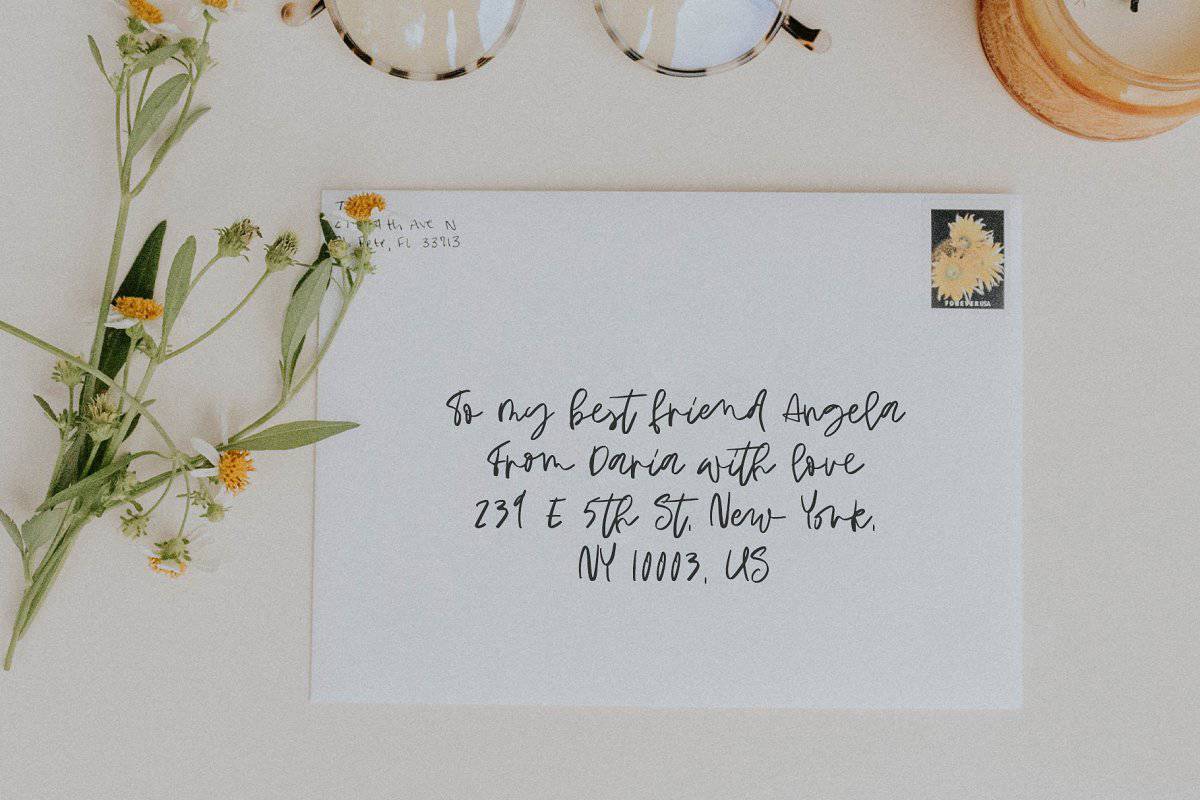 4th Ave N
Pete, FL 33713
FOREVER USA
To my best friend Angela
From Daria with love
239 E 5th St, New York,
NY 10003, US